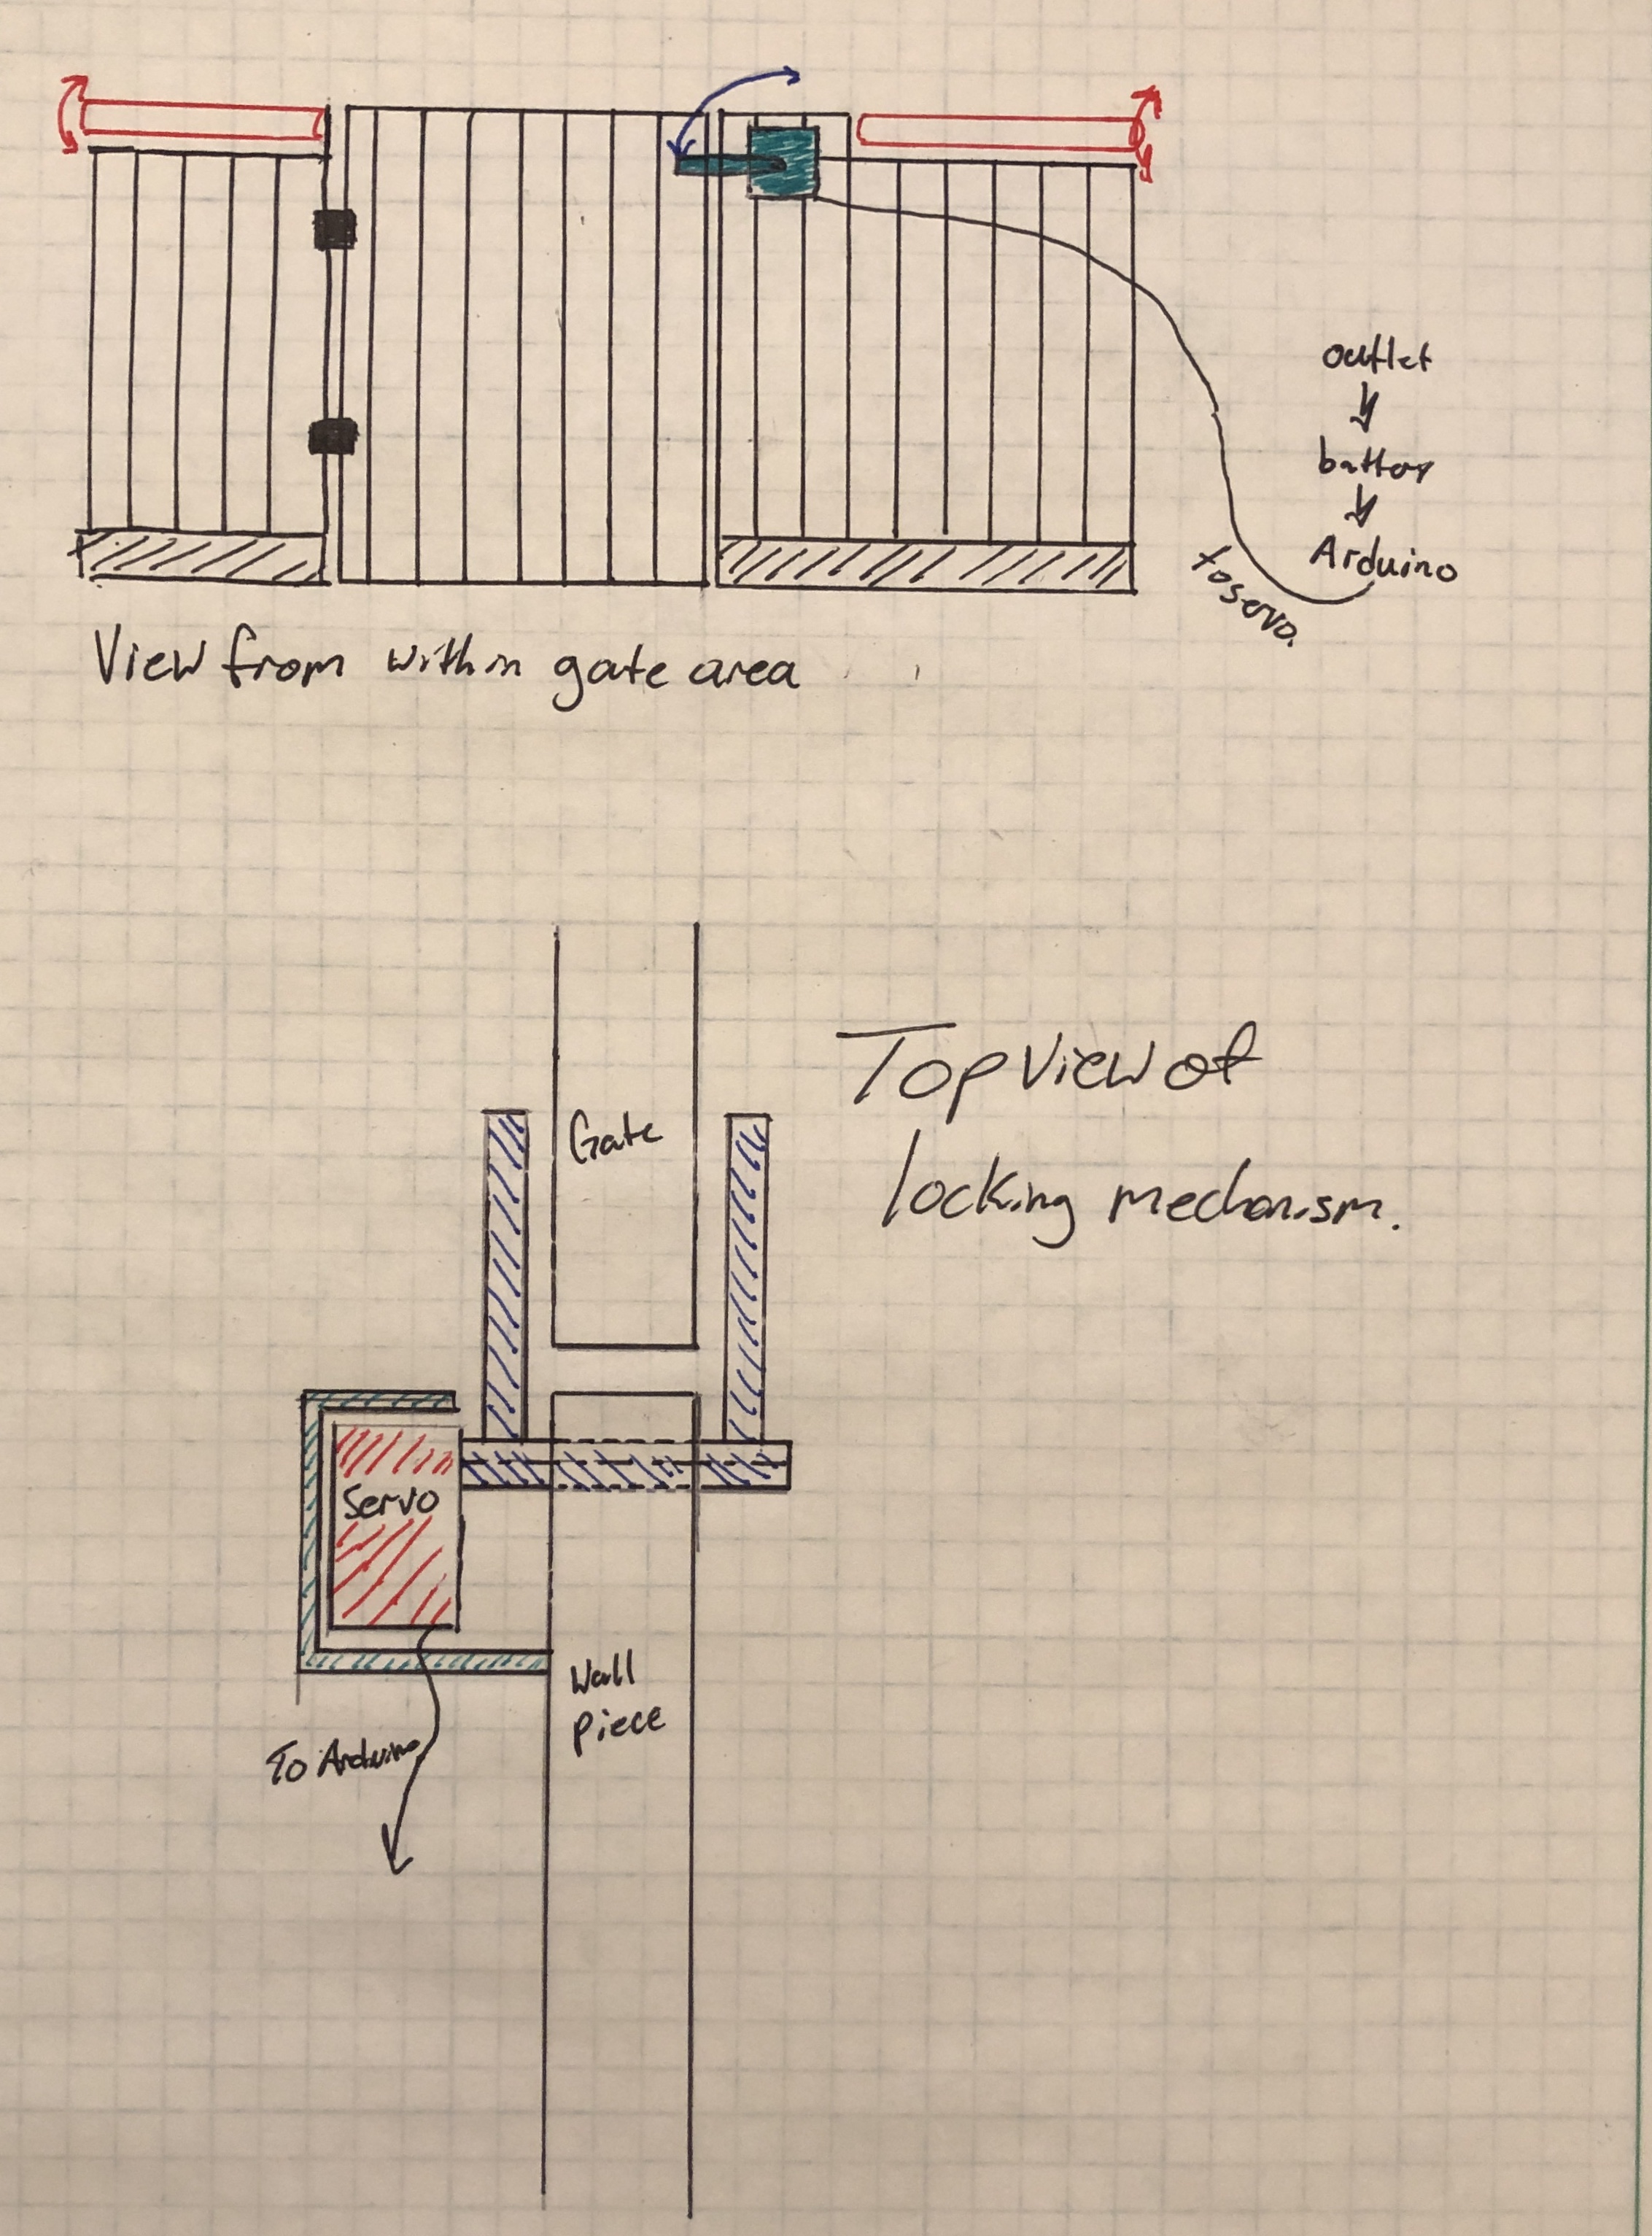 outlet
battery
Arduino
to servo.
View from within gate area
Top view of
locking mechanism.
Gate
Servo
Wall
piece
To Arduino